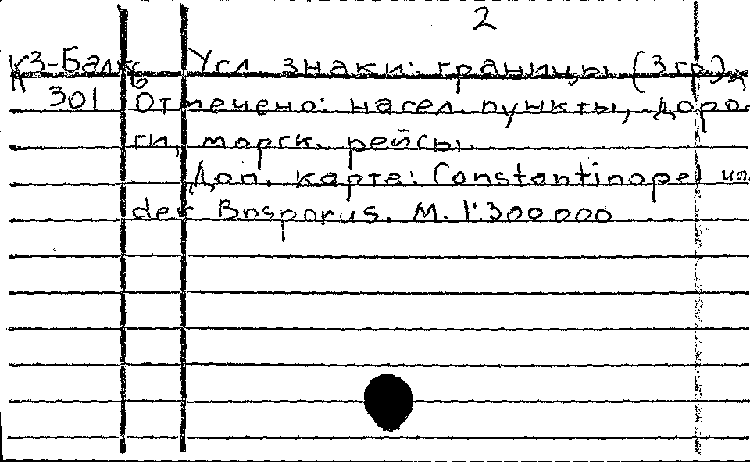 2
К3-Балк Усл. знаки: границы (3 гр.)
301 Отмечено: насел. пункты, доро-
ги, морск. рейсы.
Доп. карта: Constantinopel un
der Bosporus. М. 1:300 000